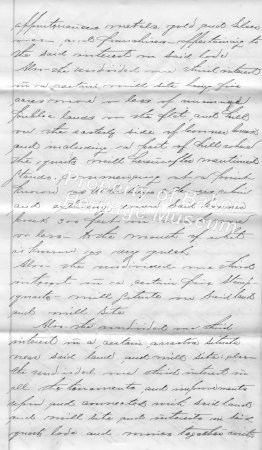 appurtenances metals gold and silver
ores and franchises appertaining to
the said interest in said lode
Also the undivided one third interest
in a certain mill site being five
acres more or less of mineral
public lands in the flat and hill
on the easterly side of
and including a part of hill where
the quartz mill hereinafter mentioned
stands commencing at a point
known as
and up said
creek 300 feet more
or less to the mouth of what
is known as dry gulch
Also the undivided one third
interest in a certain five stamp
quartz mill situate on said land
and mill site
Also the undivided one third
interest in a certain arrastra situate
near said land and mill site also
the undivided one third interest in
all the tenements and improvements
upon and connected with said land
and mill site and interests in said
quartz lode and mines together with
Museum